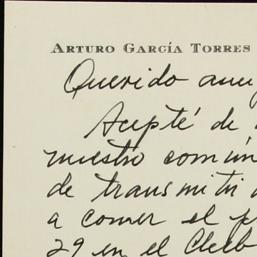 ARTURO GARCÍA TORRES
Querido
Acepté de
nuestro común
de transmitir
a comer el
29 en el Club